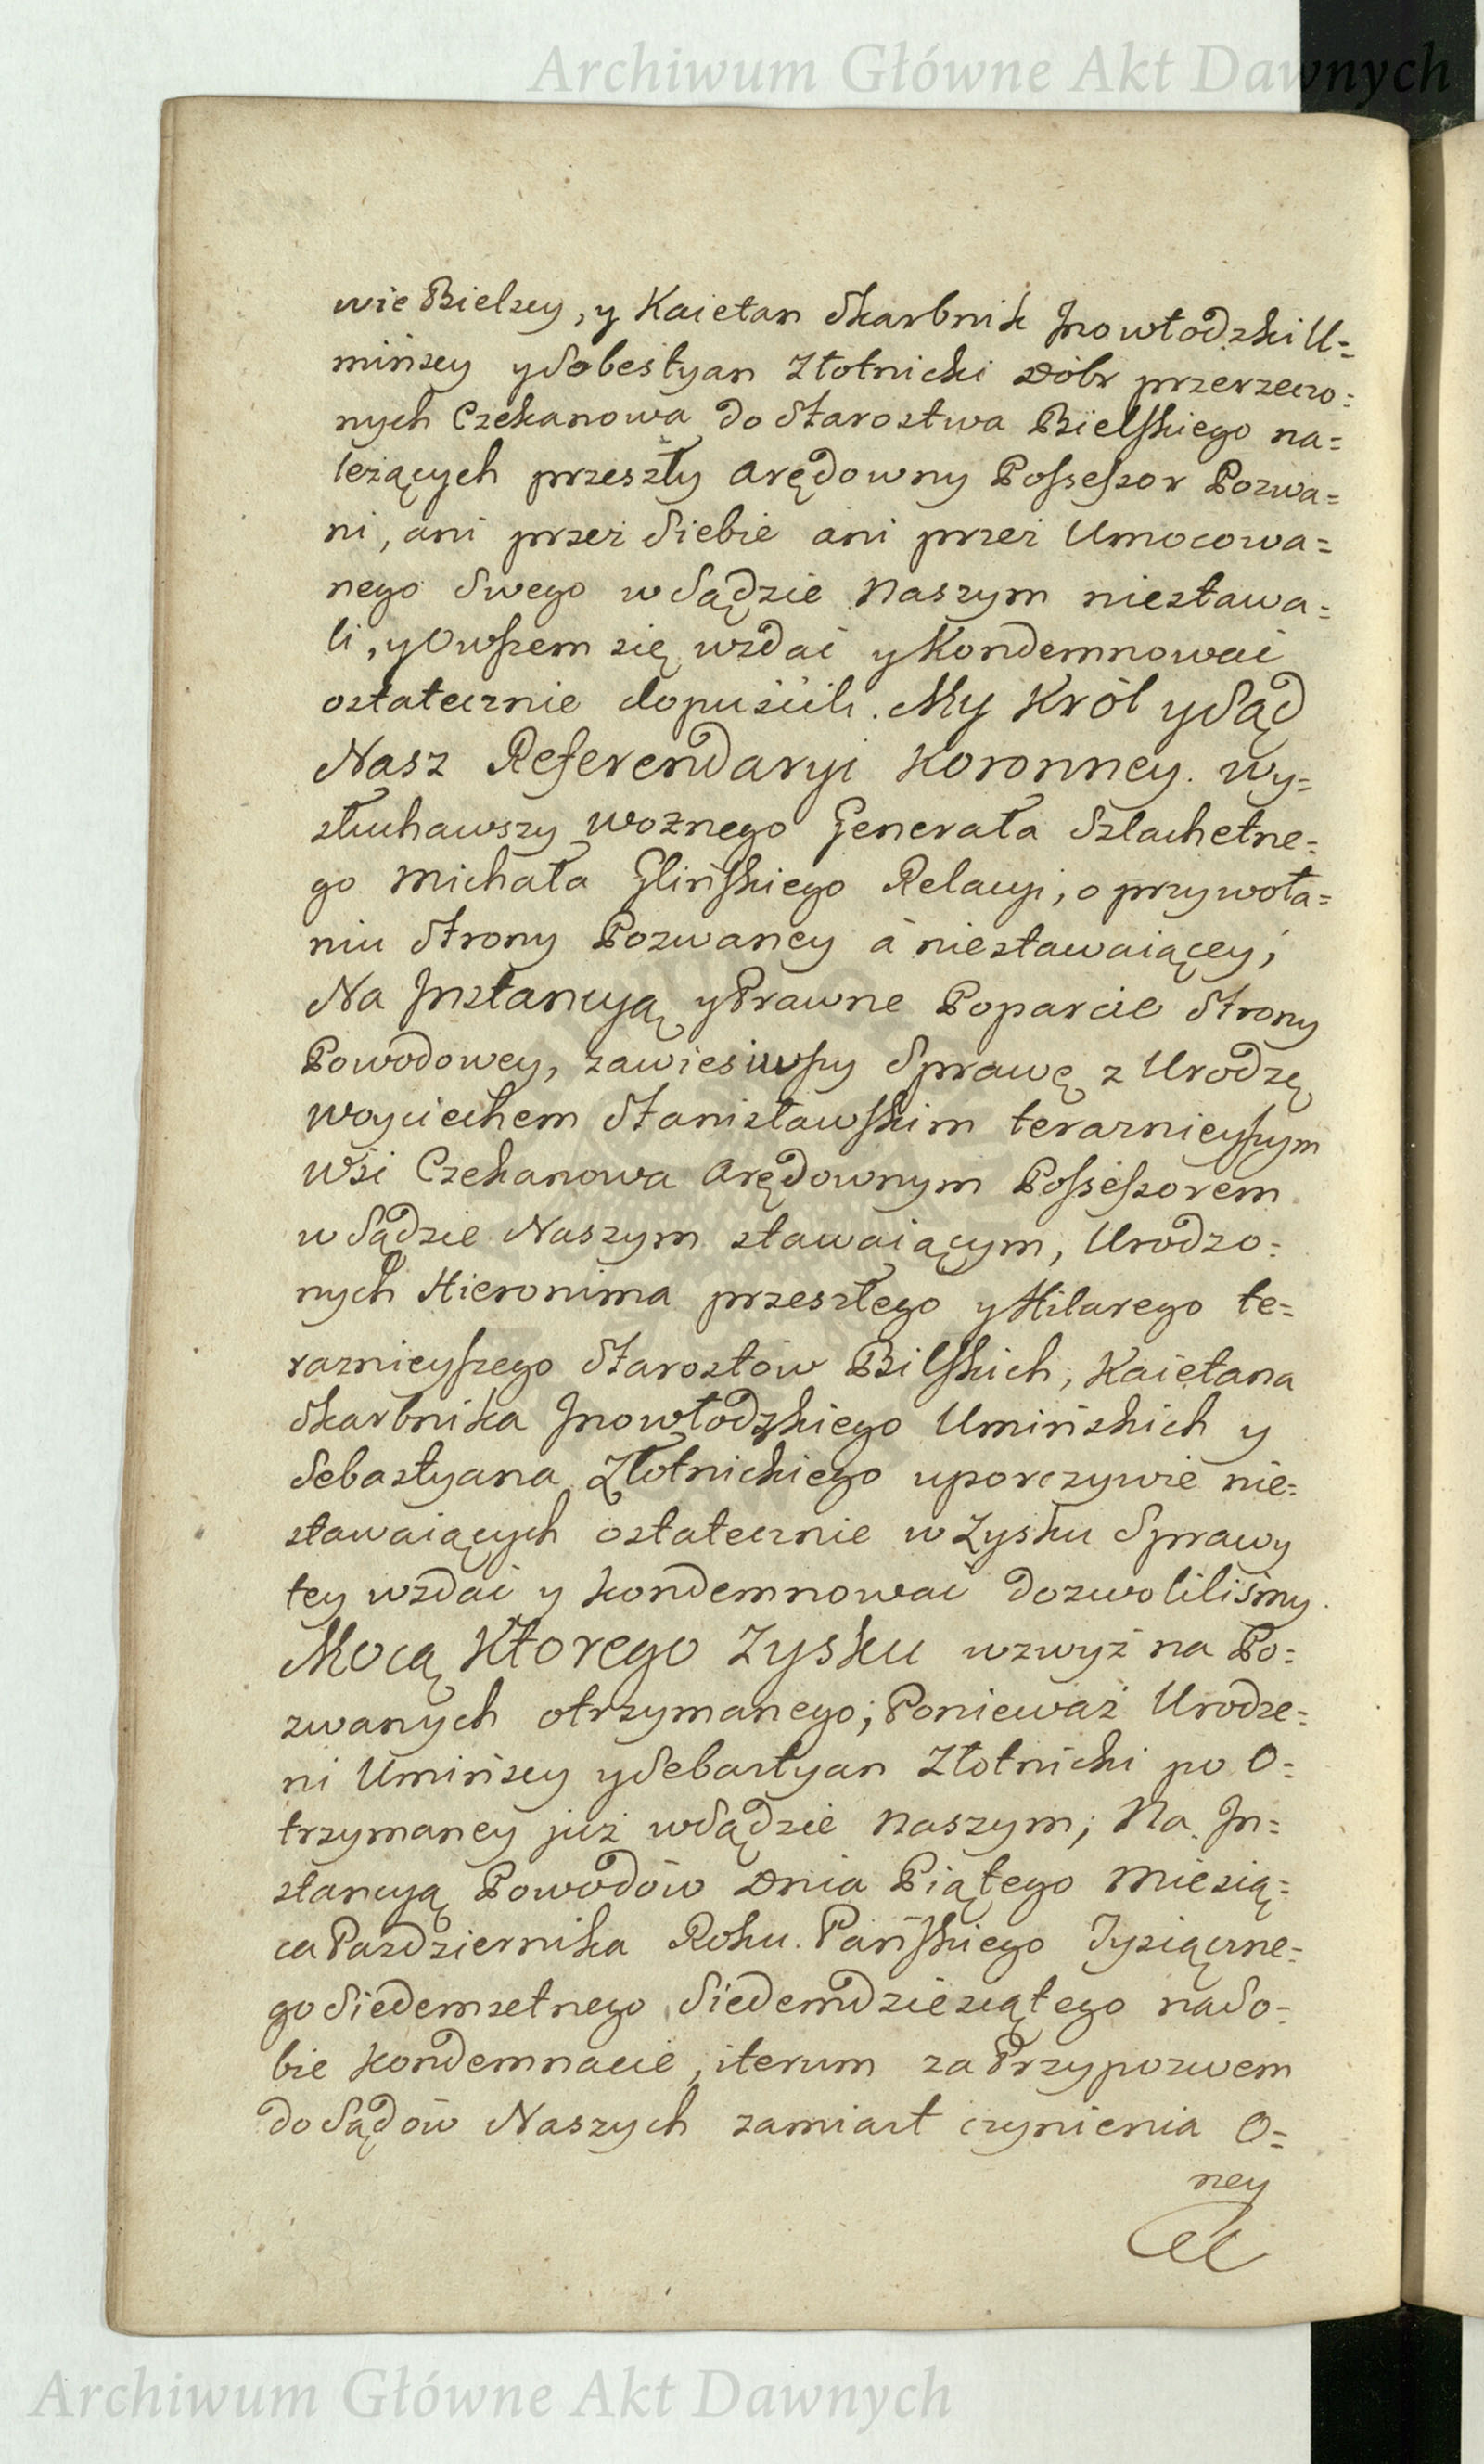 Archiwum Główne Akt Dawnych
wie Bielscy, y Kaietan Skarbnik Jnowłodzki U=
mińscy y Sobestyan Złotnicki Dobr przerzeczo=
nych Czekanowa do Starostwa Bielskiego na=
leżących przeszły Arędowny Possessor Pozwa=
ni, ani przez Siebie ani przez Umocowa=
nego Swego w Sądzie Naszym niestawa=
li, y Owszem się wzdać y Kondemnować
ostatecznie dopuścili. My Król y Sąd
Nasz Referendaryi Koronney. wy=
słuchawszy woznego Generała Szlachetne=
go Michała Glińskiego Relacyi, o przywoła=
niu Strony Pozwaney a niestawaiącey;
Na Jnstancyą y Prawne Poparcie Strony
Powodowey, zawiesiwszy Sprawę z Urodzę
Woyciechem Stanisławskim teraznieyszym
Wsi Czekanowa Arędownym Possessorem
w Sądzie Naszym stawaiącym, Urodzo=
nych Hieronima przeszłego y Hilarego te=
raznieyszego Starostów Bilskich, Kaietana
Skarbnika Jnowłodzkiego Umińskich y
Sebastyana Złotnickiego uporczywie nie=
stawaiących ostatecznie w Zysku Sprawy
tey wzdać y kondemnować dozwoliliśmy.
Mocą Ktorego Zysku wzwyż na Po=
zwanych otrzymanego; Ponieważ Urodze=
ni Umińscy y Sebastyan Złotnicki po O=
trzymaney już w Sądzie Naszym; Na Jn=
stancyą Powodów Dnia Piątego Miesią=
ca Pazdziernika Roku Pańskiego Tysiączne=
go Siedemsetnego Siedemdziesiątego na So=
bie kondemnacie, iterum za Przypozwem
do Sądów Naszych zamiast czynienia O=
ney
Archiwum Główne Akt Dawnych